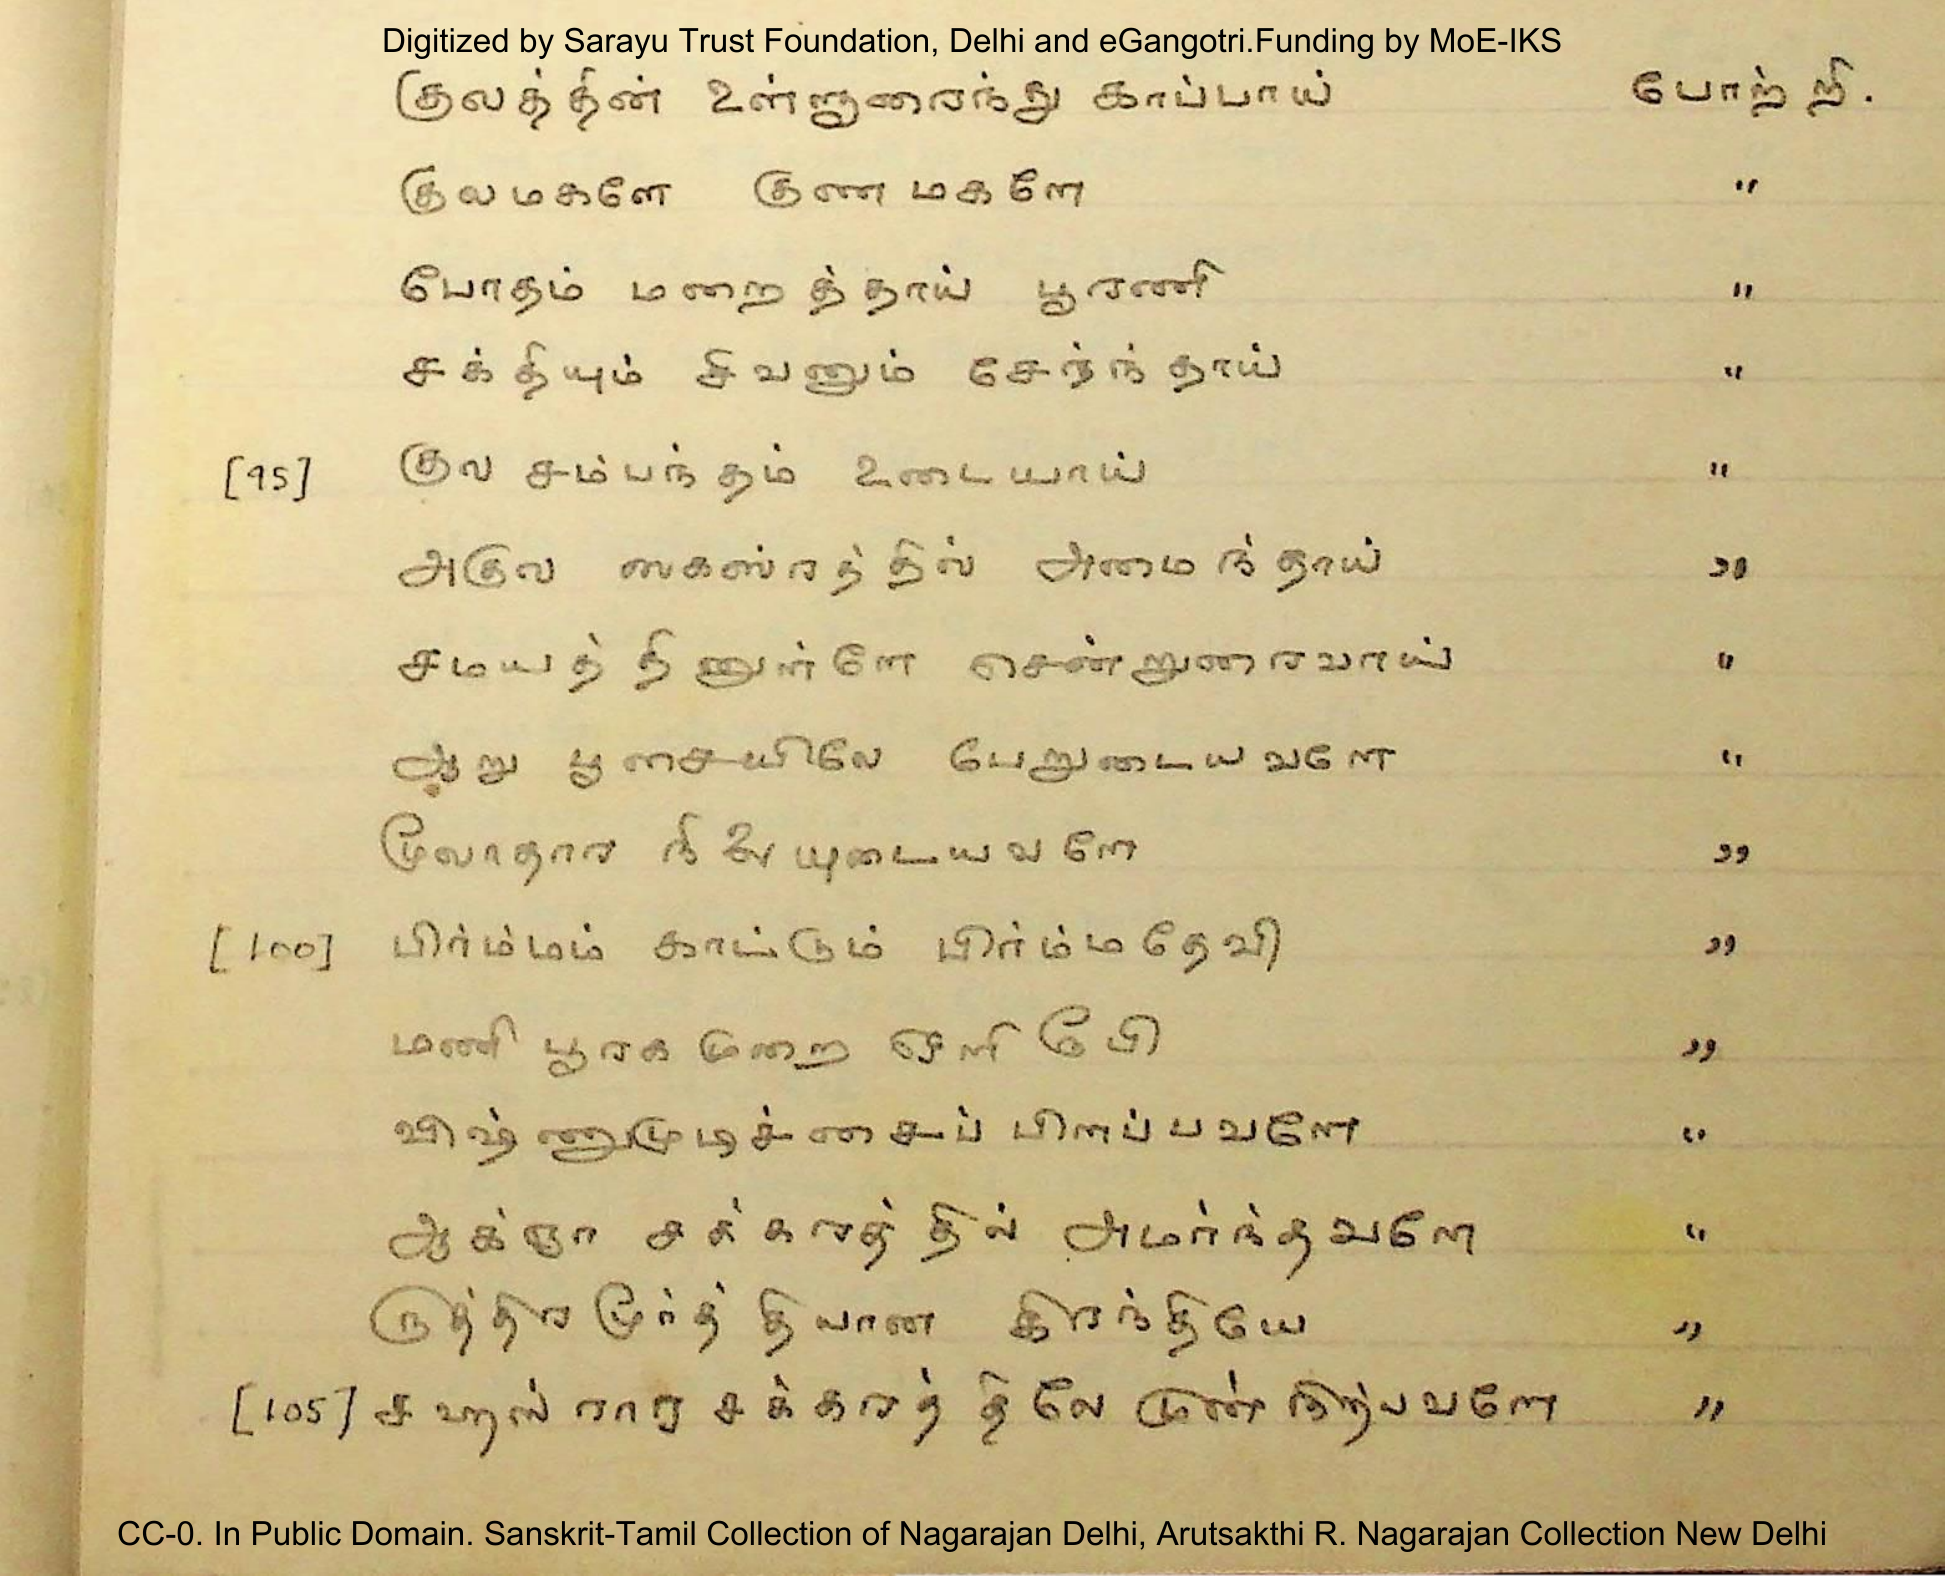 Digitized by Sarayu Trust Foundation, Delhi and eGangotri.Funding by MoE-IKS
குலத்தின் உள்ளுரைந்து காப்பாய் போற்றி.
குலமகளே குணமகளே "
போதம் மறைத்தாய் பூரணி "
சக்தியும் சிவனும் சேர்ந்தாய் "
[95] குல சம்பந்தம் உடையாய் "
அகுல ஸகஸ்ரத்தில் அமைந்தாய் "
சமயத்தினுள்ளே சென்றுரைவாய் "
ஆறு பூசையிலே பேறுடையவளே "
மூலாதார நிலையுடையவளே "
[100] பிர்ம்மம் காட்டும் பிர்ம்மதேவி "
மணி பூரக முறை ஒளி "
விஷ்ணுமுடிச்சைப் பிளப்பவளே "
ஆக்ஞா சக்கரத்தில் அமர்ந்தவளே "
ருத்திர மூர்த்தியான கிரந்தியே "
[105] சஹஸ்ரார சக்கரத்திலே முன் நிற்பவளே "
CC-0. In Public Domain. Sanskrit-Tamil Collection of Nagarajan Delhi, Arutsakthi R. Nagarajan Collection New Delhi